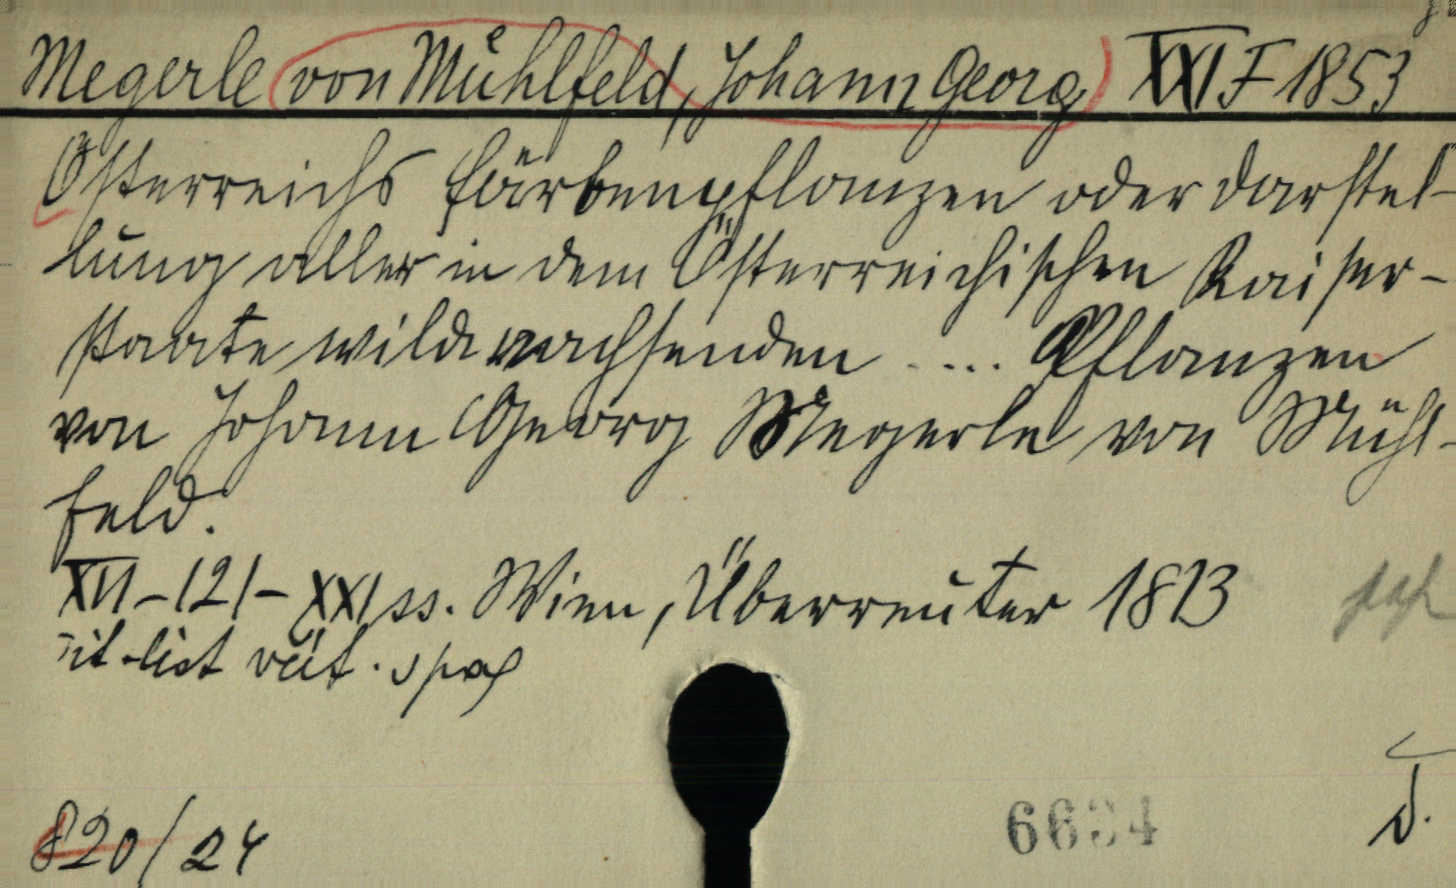 Megerle (von Mühlfeld, Johann Georg) XXI F 1853
Österreichs Färbenpflanzen oder Darstel-
lung aller in dem Österreichischen Kaiser-
staate wildwachsenden .... Pflanzen
von Johann Georg Megerle von Mühl-
feld.
XVI-121-XXI ss. Wien, Überreuter 1813
820/24
D.